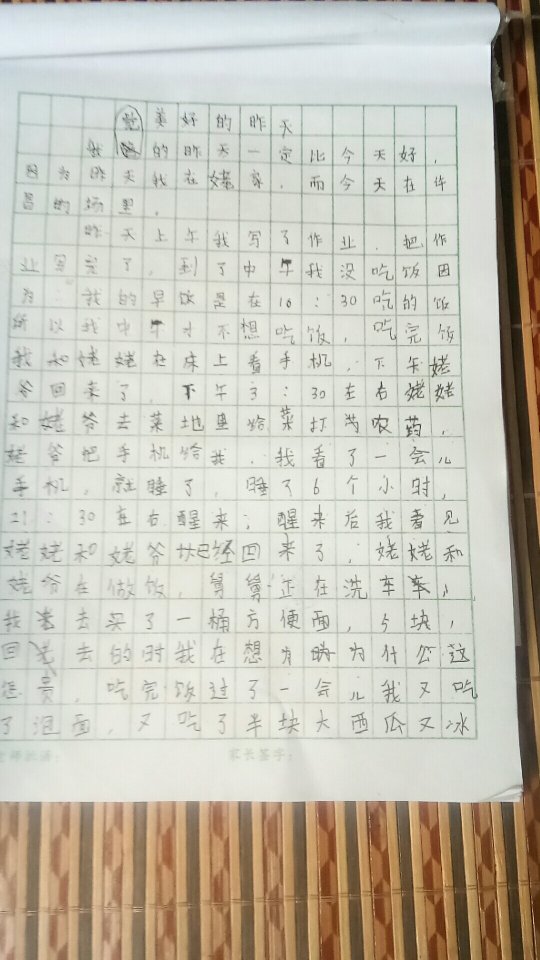 美好的昨天
我的昨天一定比今天好，
因为昨天我在姥家，而今天在许
昌的场里，
昨天上午我写了作业，把作
业写完了，到了中午我没吃饭因
为：我的早饭是在10：30吃的饭
所以我中午才不想吃饭，吃完饭
我和姥姥在床上看手机，下午姥
爷回来了 下午3：30左右姥姥
和姥爷去菜地里给菜打农药，
姥爷把手机给我，我看了一会儿
手机，就睡了，睡了6个小时，
21：30在右醒来，醒来后我看见
姥姥和姥爷已经回来了，姥姥和
姥爷在做饭，舅舅正在洗车，
我去买了一桶方便面，5块，
回去的时我在想为什么这
怎贵，吃完饭过了一会儿我又吃
了泡面，又吃了半块大西瓜又冰
家长签字：